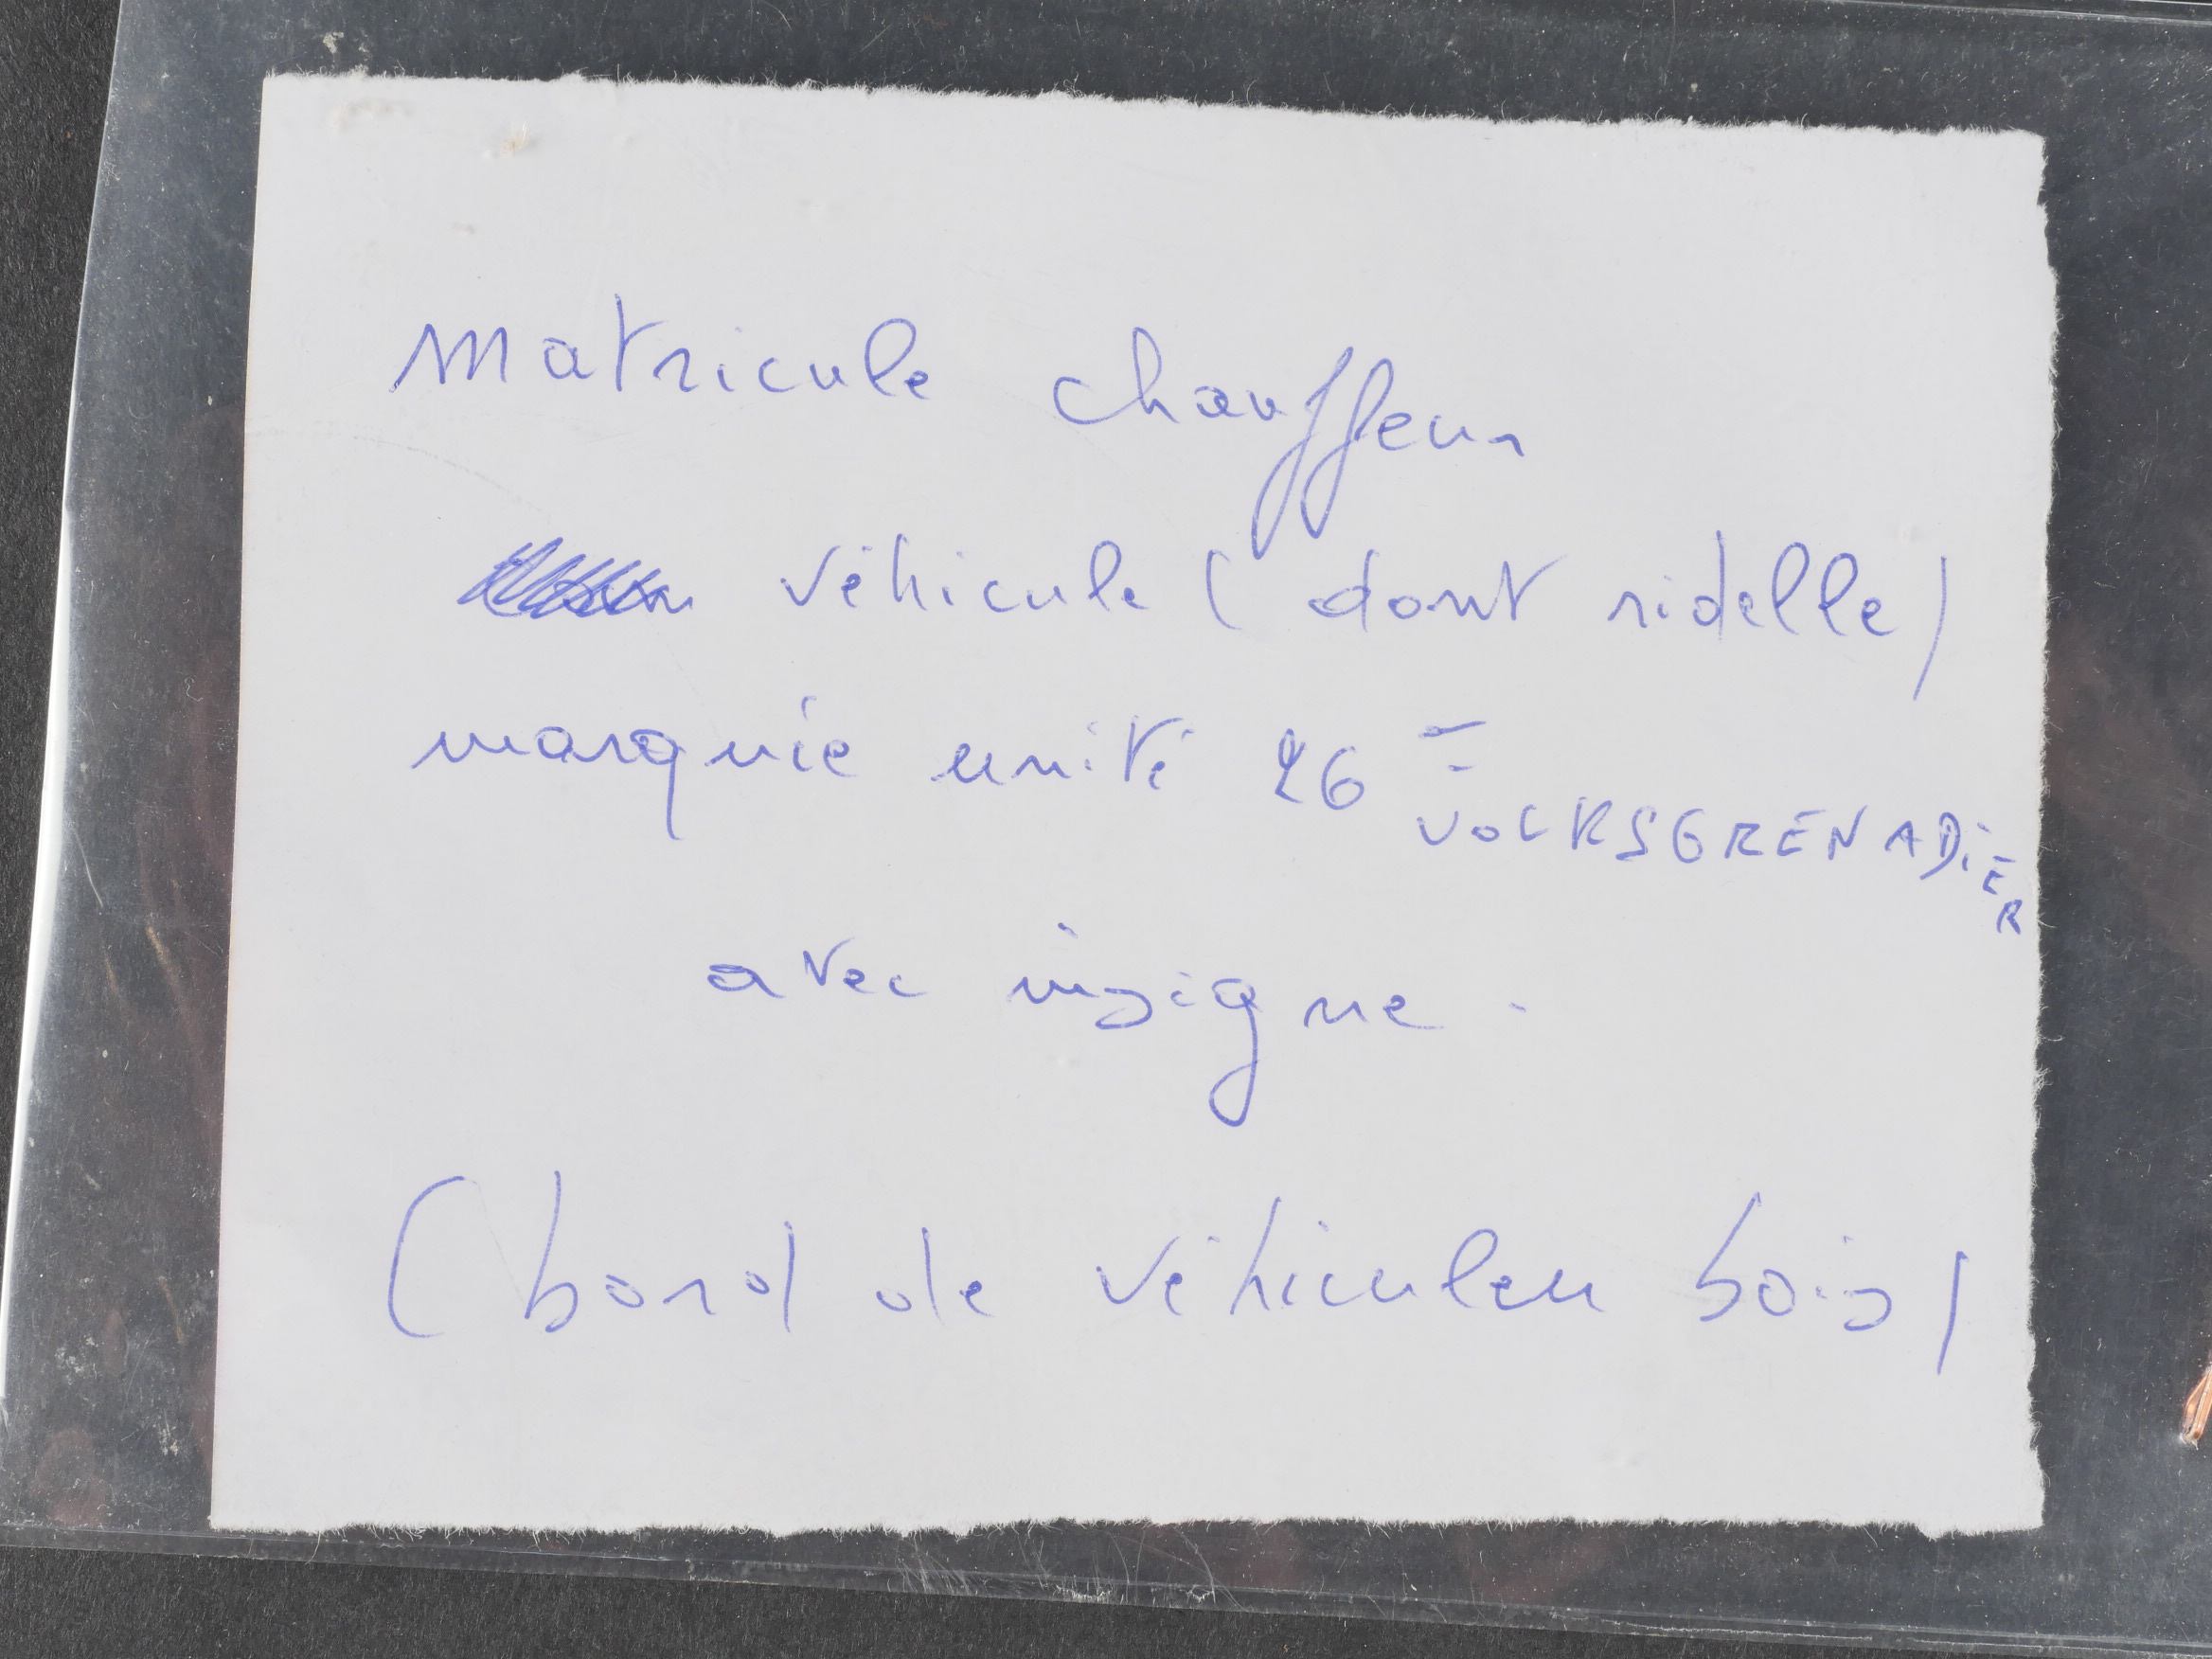 Matricule chauffeur
véhicule (dont ridelle)
marquée unité 26 = VOLKSGRENADiER
avec insigne.
(bord de véhicule bois)